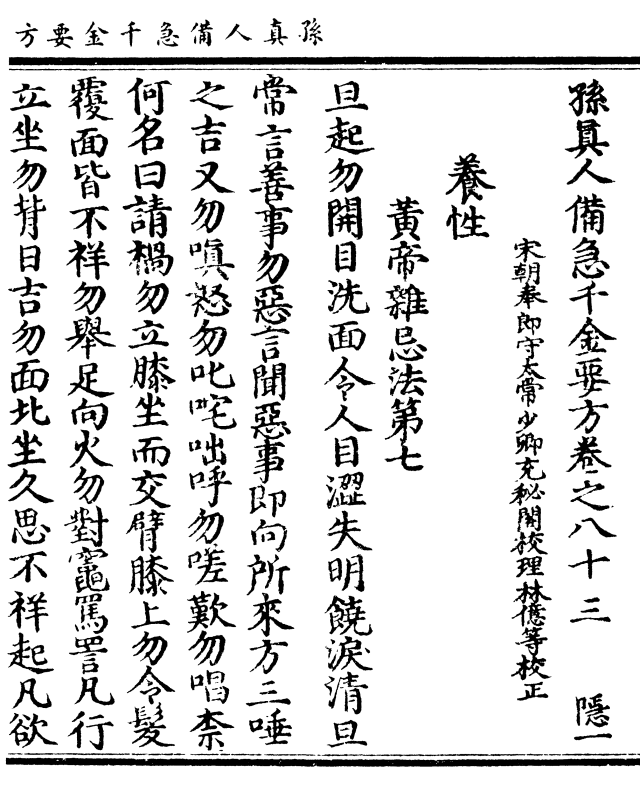 孫真人備急千金要方
孫真人備急千金要方卷之八十三 隱一
宋朝奉郎守太常少卿充秘閣校理林億等校正
養性
黃帝雜忌法第七
旦起勿開目洗面令人目澀失明饒淚清旦
常言善事勿惡言聞惡事即向所來方三唾
之吉又勿嗔怒勿叱咤咄呼勿嗟歎勿唱柰
何名曰請禍勿立膝坐而交臂膝上勿令髮
覆面皆不祥勿舉足向火勿對竈罵詈凡行
立坐勿背日吉勿面北坐久思不祥起凡欲